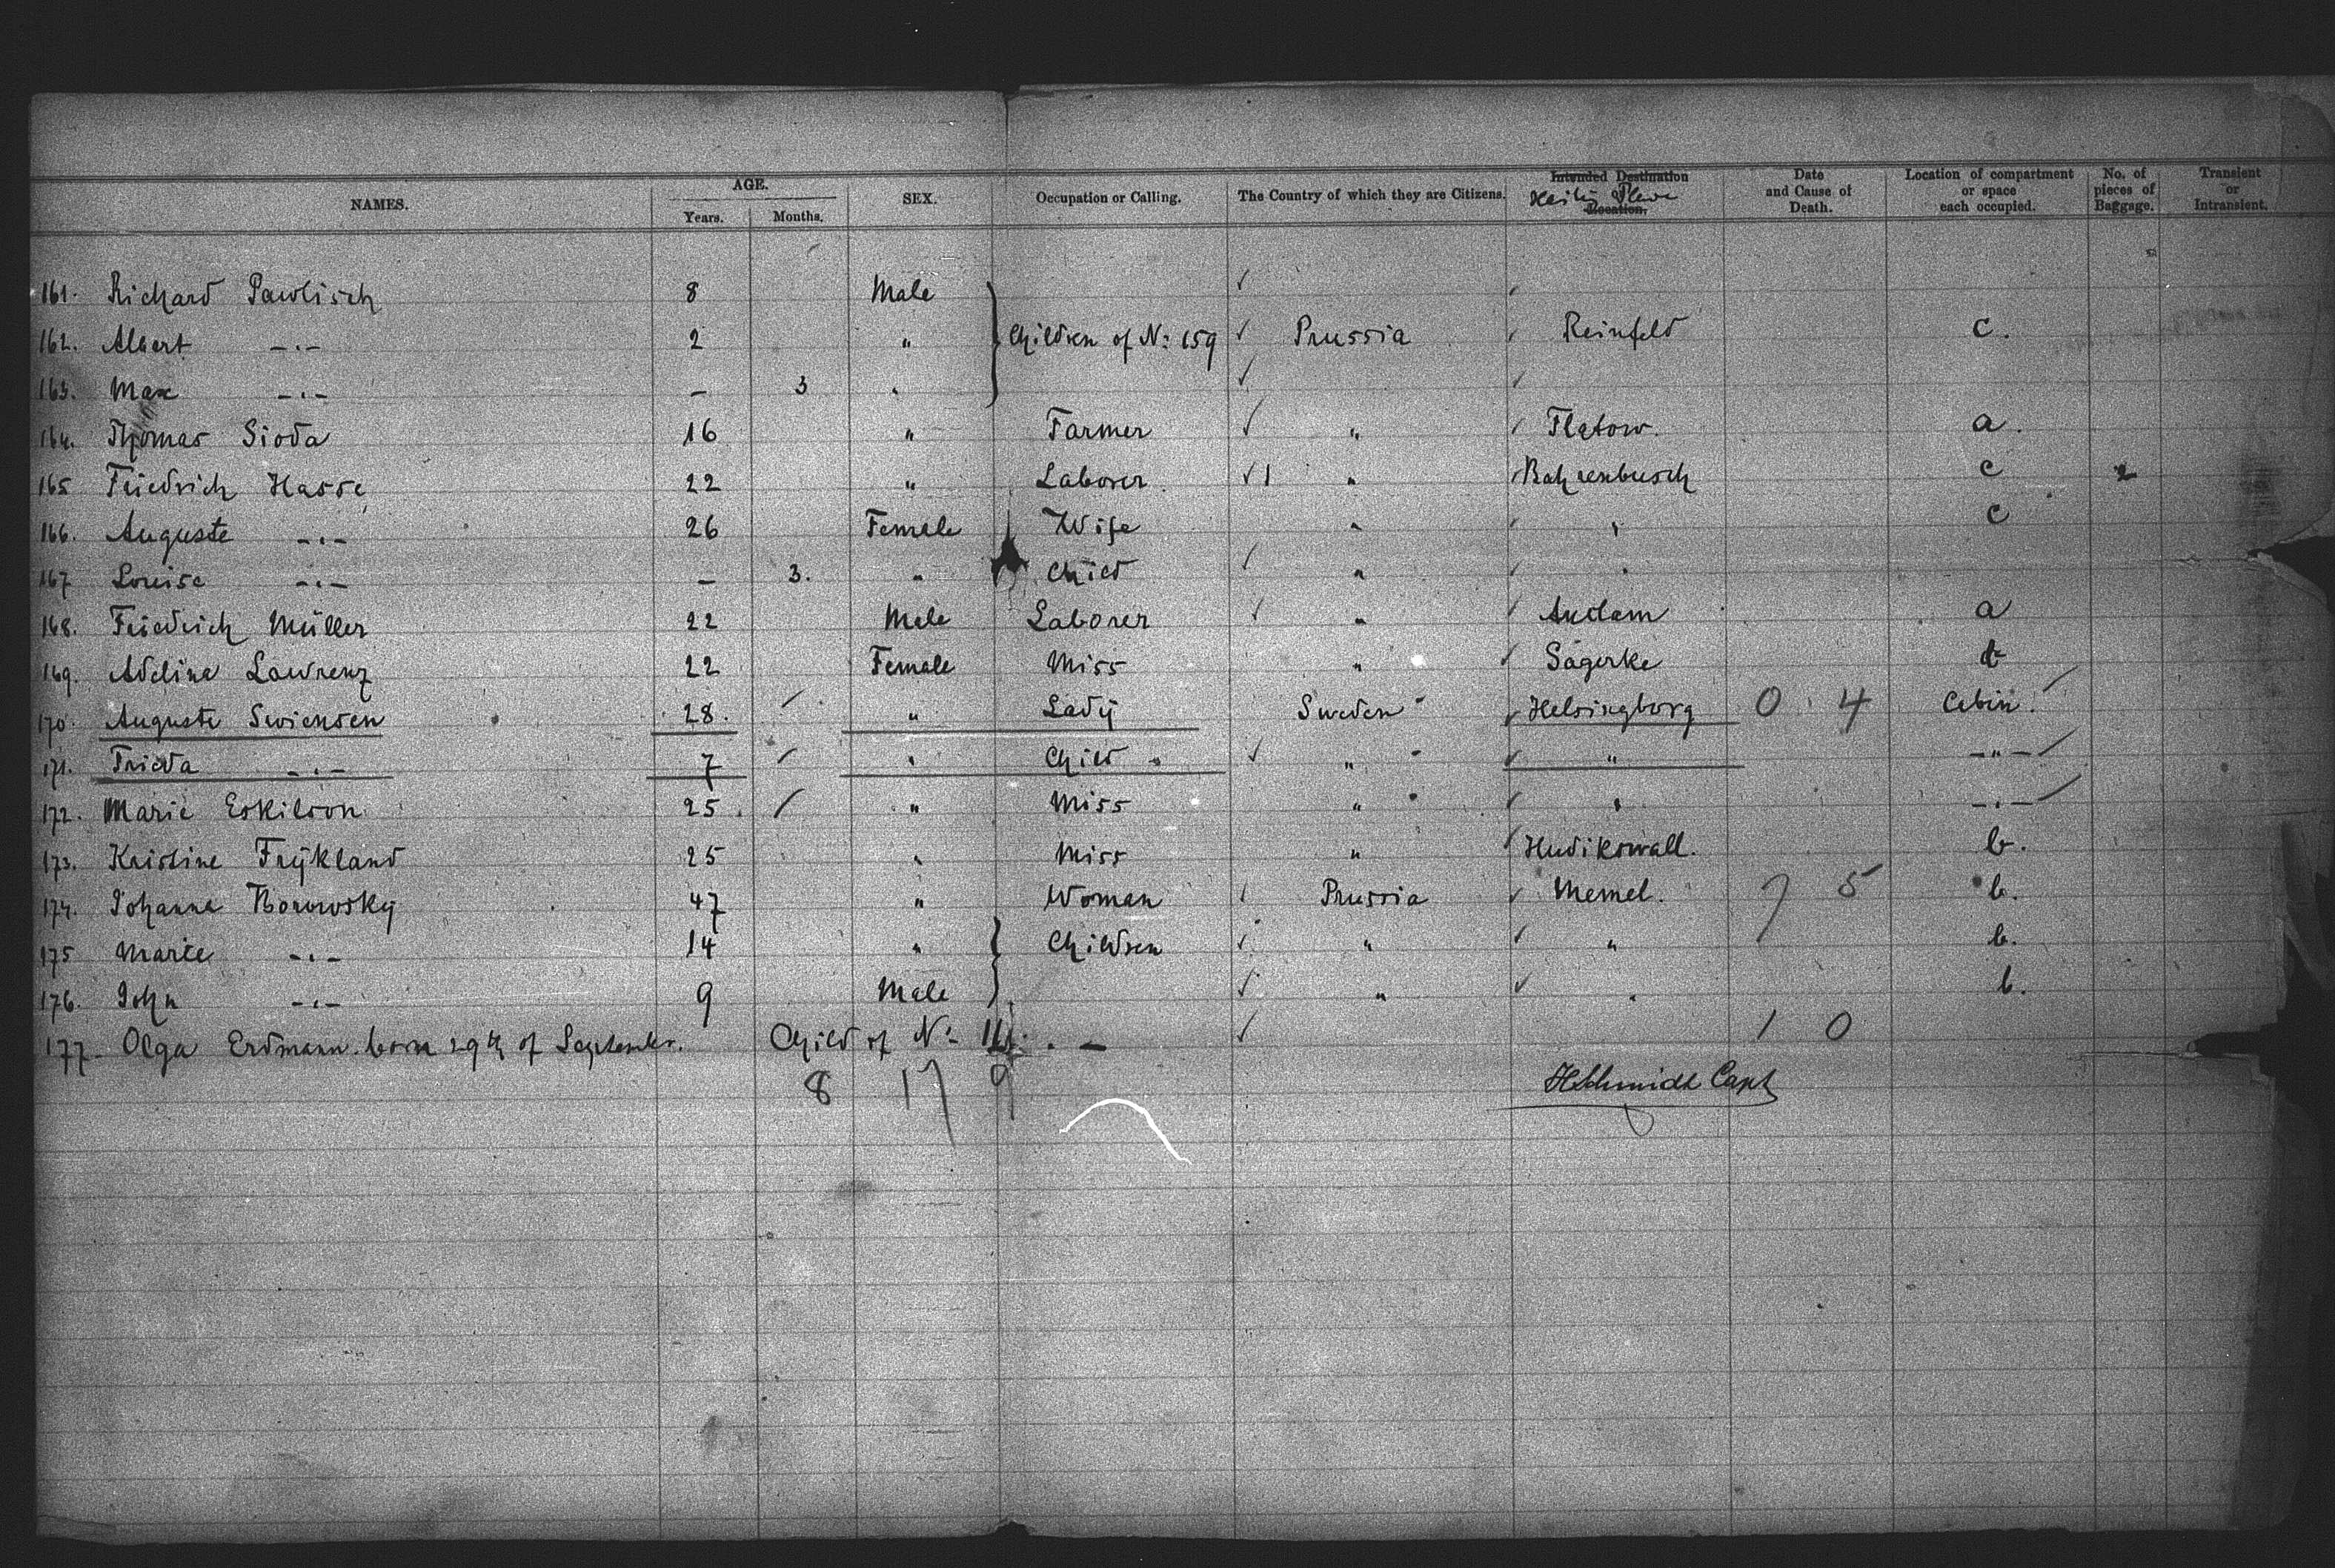 NAMES. AGE. Years. Months. SEX. Occupation or Calling. The Country of which they are Citizens. Intended Destination Location. Date and Cause of Death. Location of compartment or space each occupied. No. of pieces of Baggage. Transient or Intransient.
161. Richard Pawlisch 8 Male
162. Albert -"- 2 " Children of No: 159 Prussia Reinfeld c.
163. Max -"- - 3 "
164. Thomas Sioda 16 " Farmer " Flatow. a.
165 Friedrich Hasse 22 " Laborer " Bahrenbusch c 2
166. Auguste -"- 26 Female Wife " " c
167 Louise -"- - 3. " Child " "
168. Friedrich Müller 22 Male Laborer " Anclam a
169. Adeline Lawrenz 22 Female Miss " Sägerke b
170. Auguste Swensen 28. " Lady Sweden Helsingborg 0 4 Cabin.
171. Frieda -"- 7 " Child " " " -"-
172. Marie Eskilson 25. " Miss " " -"-
173. Kristine Frykland 25 " Miss " Hudikswall. b.
174. Johanna Borowsky 47 " Woman Prussia Memel. 7 5 b.
175 Marie -"- 14 " Children " " b.
176. John -"- 9 Male " " b.
177. Olga Erdmann. born 29th of September. Child of No - 1 0
8 17 9
HSchmidt Capt